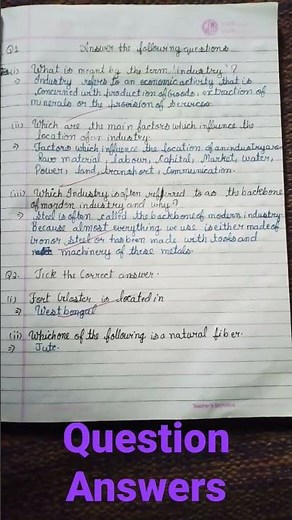 Q1 Answer the following questions
(i) What is meant by the term 'industry'?
⇒ Industry refers to an economic activity that is
concerned with production of Goods, extraction of
minerals or the provision of services.
(ii) Which are the main factors which influence the
location of an industry.
⇒ Factors which influence the location of an industry are
Raw material, Labour, Capital, Market, water,
Power, land, transport, communication.
(iii) Which Industry is often reffered to as the backbone
of mordern industry and why?
⇒ Steel is often called the backbone of modern industry.
Because almost everything we use is either made of
iron or steel or has been made with tools and
machinery of these metals.
Q2. Tick the Correct answer.
(i) Fort Gloster is located in
⇒ West bengal
(ii) Which one of the following is a natural fiber.
⇒ Jute.
Teacher's Signature
Question
Answers